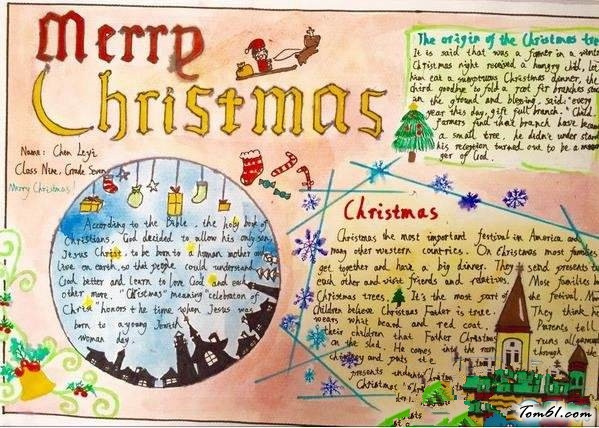 Merry
Christmas
Name: Chen Leyi
Class Nine, Grade Seven
Merry Christmas!
The origin of the Christmas tree
It is said that was a farmer in a
Christmas night received a hungry child, let
him eat a sumptuous Christmas dinner, the
third goodbye to fold a root fir branches
on the ground and blessing, said: "every
year this day, gift full branch." Child
farmers find that branch have
a small tree, he didn't under stand
his reception turned out to be a
ger of God.
According to the Bible, the holy book of
Christians, God decided to allow his only son,
Jesus Christ, to be born to a human mother and
live on earth so that people could understand
God better and learn to love God and each
other more. "Christmas" meaning "celebration of
Christ" honors the time when Jesus was
born to a young Jewish
woman day.
Christmas
Christmas the most important festival in America and
many other western countries. On Christmas most families
get together and have a big dinner. They send presents to
each other and visit friends and relatives. Most families have
Christmas trees. It's the most part of the festival. Many
children believe Christmas Father is true. They think he
wears what beard and red coat. Parents tell
their children that Father Christmas runs all
on the sled. He comes into the room through the
chimney and puts the
presents
Christmas
Tom61.com